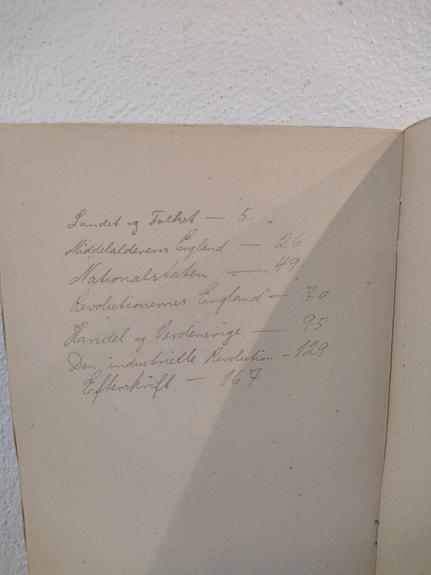 Landet og Folket — 5.
Middelalderens England — 26
Nationalstaten — 49
Revolutionernes England — 70
Handel og Verdensrige — 95
Den industrielle Revolution — 129
Efterskrift — 167